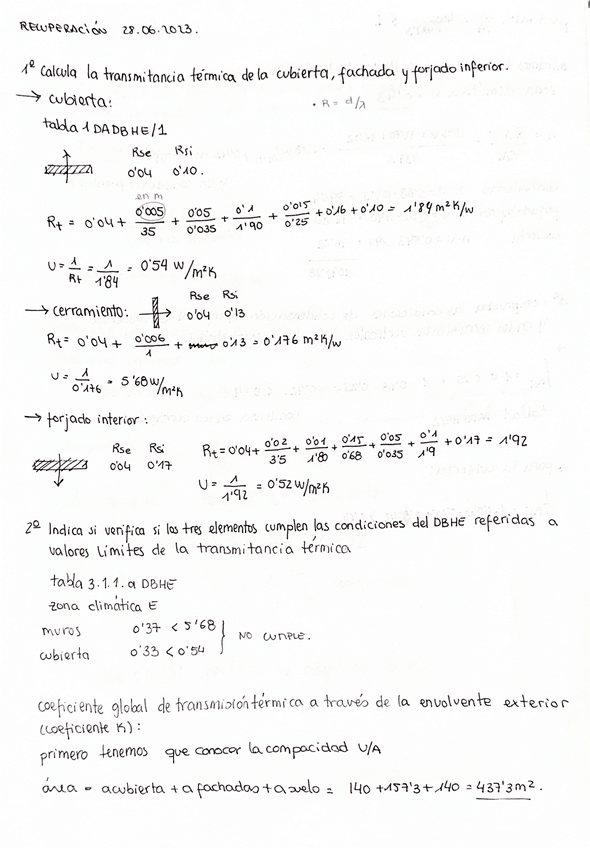 RECUPERACIÓN 28.06.2023.
1º Calcula la transmitancia térmica de la cubierta, fachada y forjado inferior.
→ cubierta:
• R = d/λ
tabla 1 DADBHE/1
Rse Rsi
0'04 0'10.
en m
Rt = 0'04 + 0'005/35 + 0'05/0'035 + 0'1/1'90 + 0'015/0'25 + 0'16 + 0'10 = 1'84 m²K/w
U = 1/Rt = 1/1'84 = 0'54 W/m²K
→ cerramiento:
Rse Rsi
0'04 0'13
Rt = 0'04 + 0'006/1 + 0'13 = 0'176 m²K/w
U = 1/0'176 = 5'68 w/m²K
→ forjado interior:
Rse Rsi
0'04 0'17
Rt = 0'04 + 0'02/3'5 + 0'01/1'80 + 0'15/0'68 + 0'05/0'035 + 0'1/1'9 + 0'17 = 1'92
U = 1/1'92 = 0'52 W/m²K
2º Indica si verifica si los tres elementos cumplen las condiciones del DBHE referidas a
valores límites de la transmitancia térmica
tabla 3.1.1.a DBHE
zona climática E
muros 0'37 < 5'68
cubierta 0'33 < 0'54
NO CUMPLE.
coeficiente global de transmisión térmica a través de la envolvente exterior
(coeficiente K):
primero tenemos que conocer la compacidad V/A
área = a cubierta + a fachadas + a suelo = 140 + 157'3 + 140 = 437'3 m².